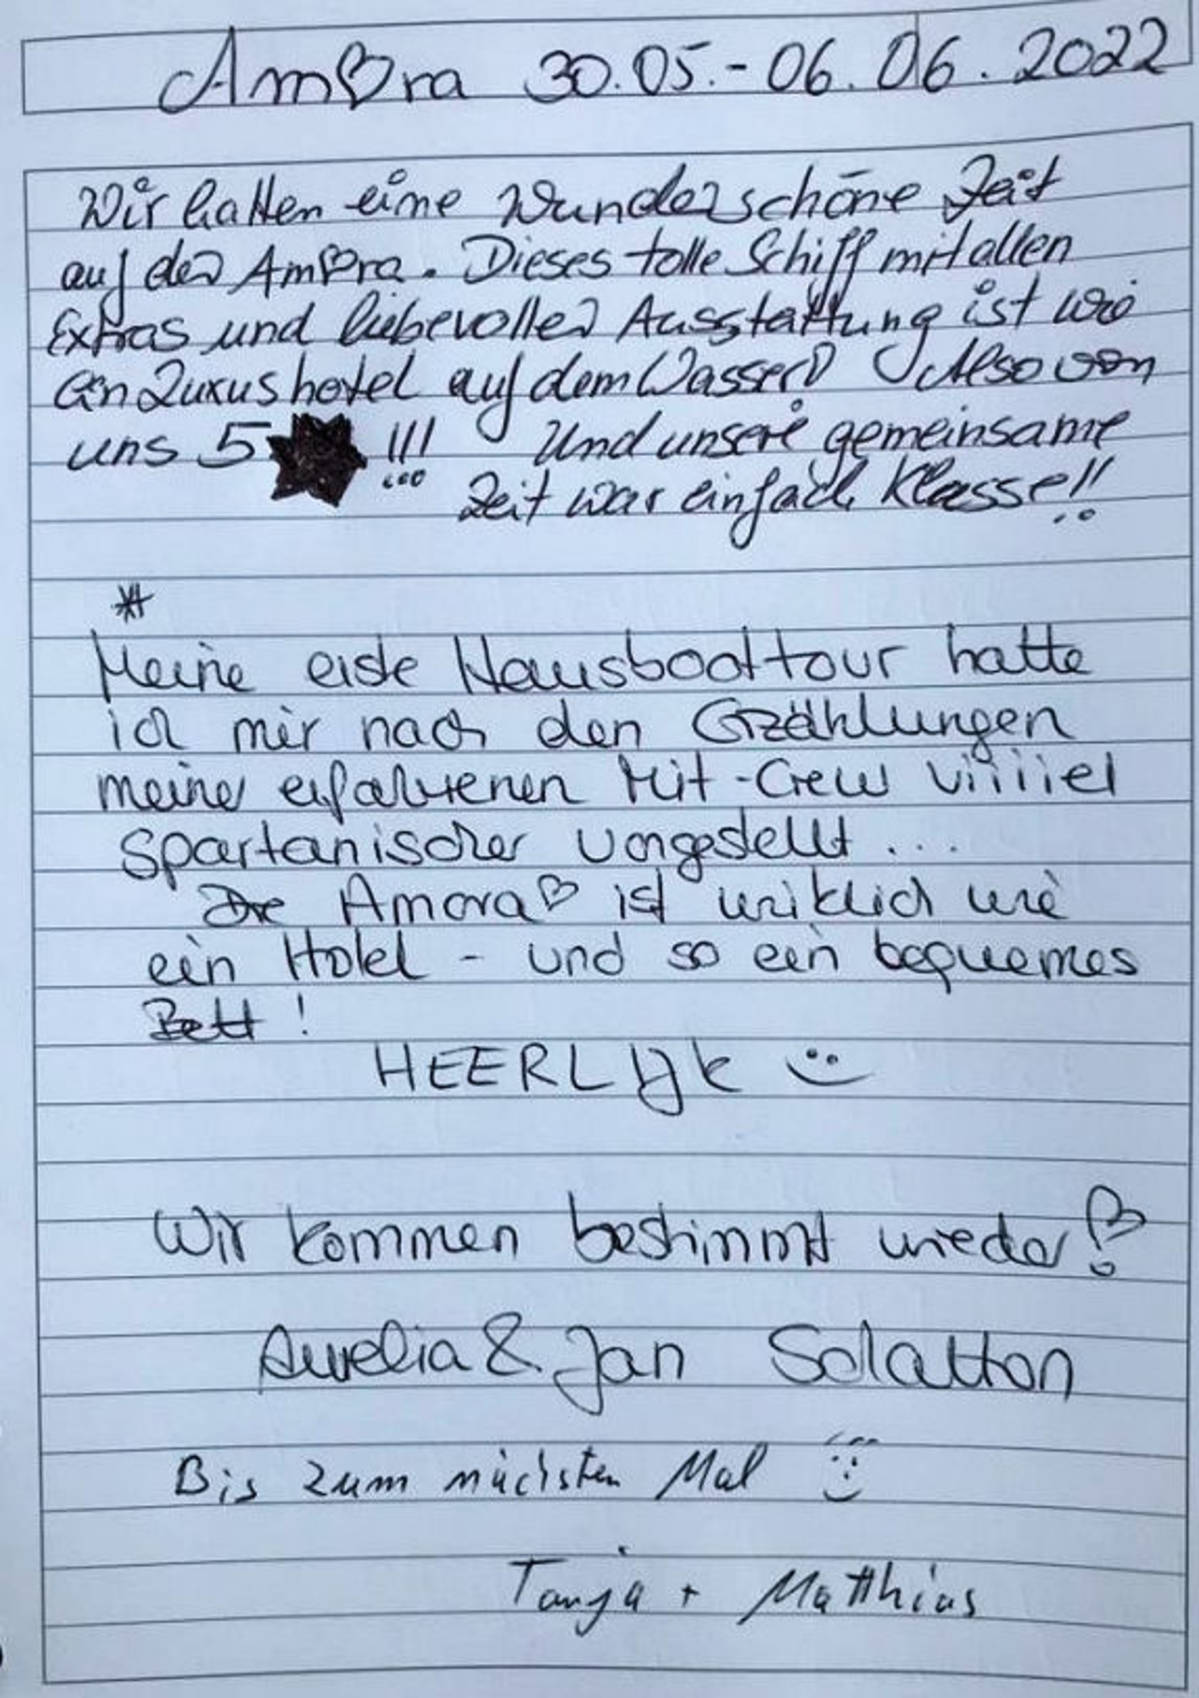 Am♡ra 30.05.-06.06.2022
Wir hatten eine wunderschöne Zeit
auf der Am♡ra. Dieses tolle Schiff mit allen
Extras und liebevoller Ausstattung ist wie
ein Luxushotel auf dem Wasser! Also von
uns 5 ★ !!! Und unsere gemeinsame
Zeit war einfach Klasse!!
*
Meine erste Hausboottour hatte
ich mir nach den Erzählungen
meiner erfahrenen Mit-Crew viiiiel
spartanischer vorgestellt ...
Die Amora♡ ist wirklich wie
ein Hotel - und so ein bequemes
Bett!
HEERLIJK ☺
Wir kommen bestimmt wieder!
Aurelia & Jan
Bis zum nächsten Mal ☺
Tanja + Matthias